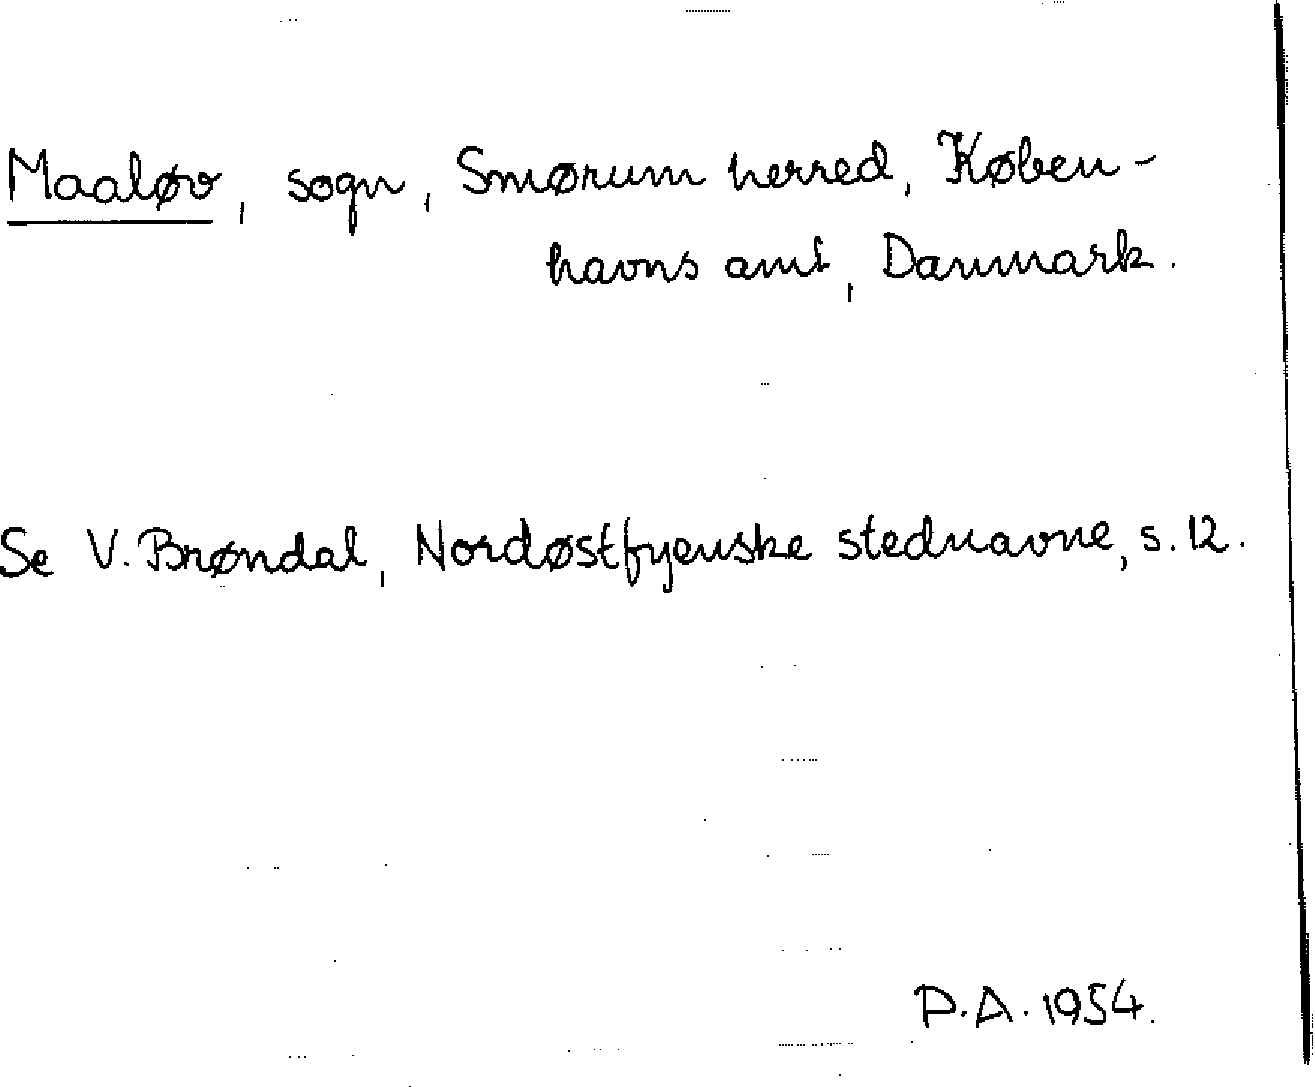 Maaløv, sogn, Smørum herred, Køben-
havns amt, Danmark.
Se V. Brøndal, Nordøstfyenske stednavne, s. 12.
P.A. 1954.